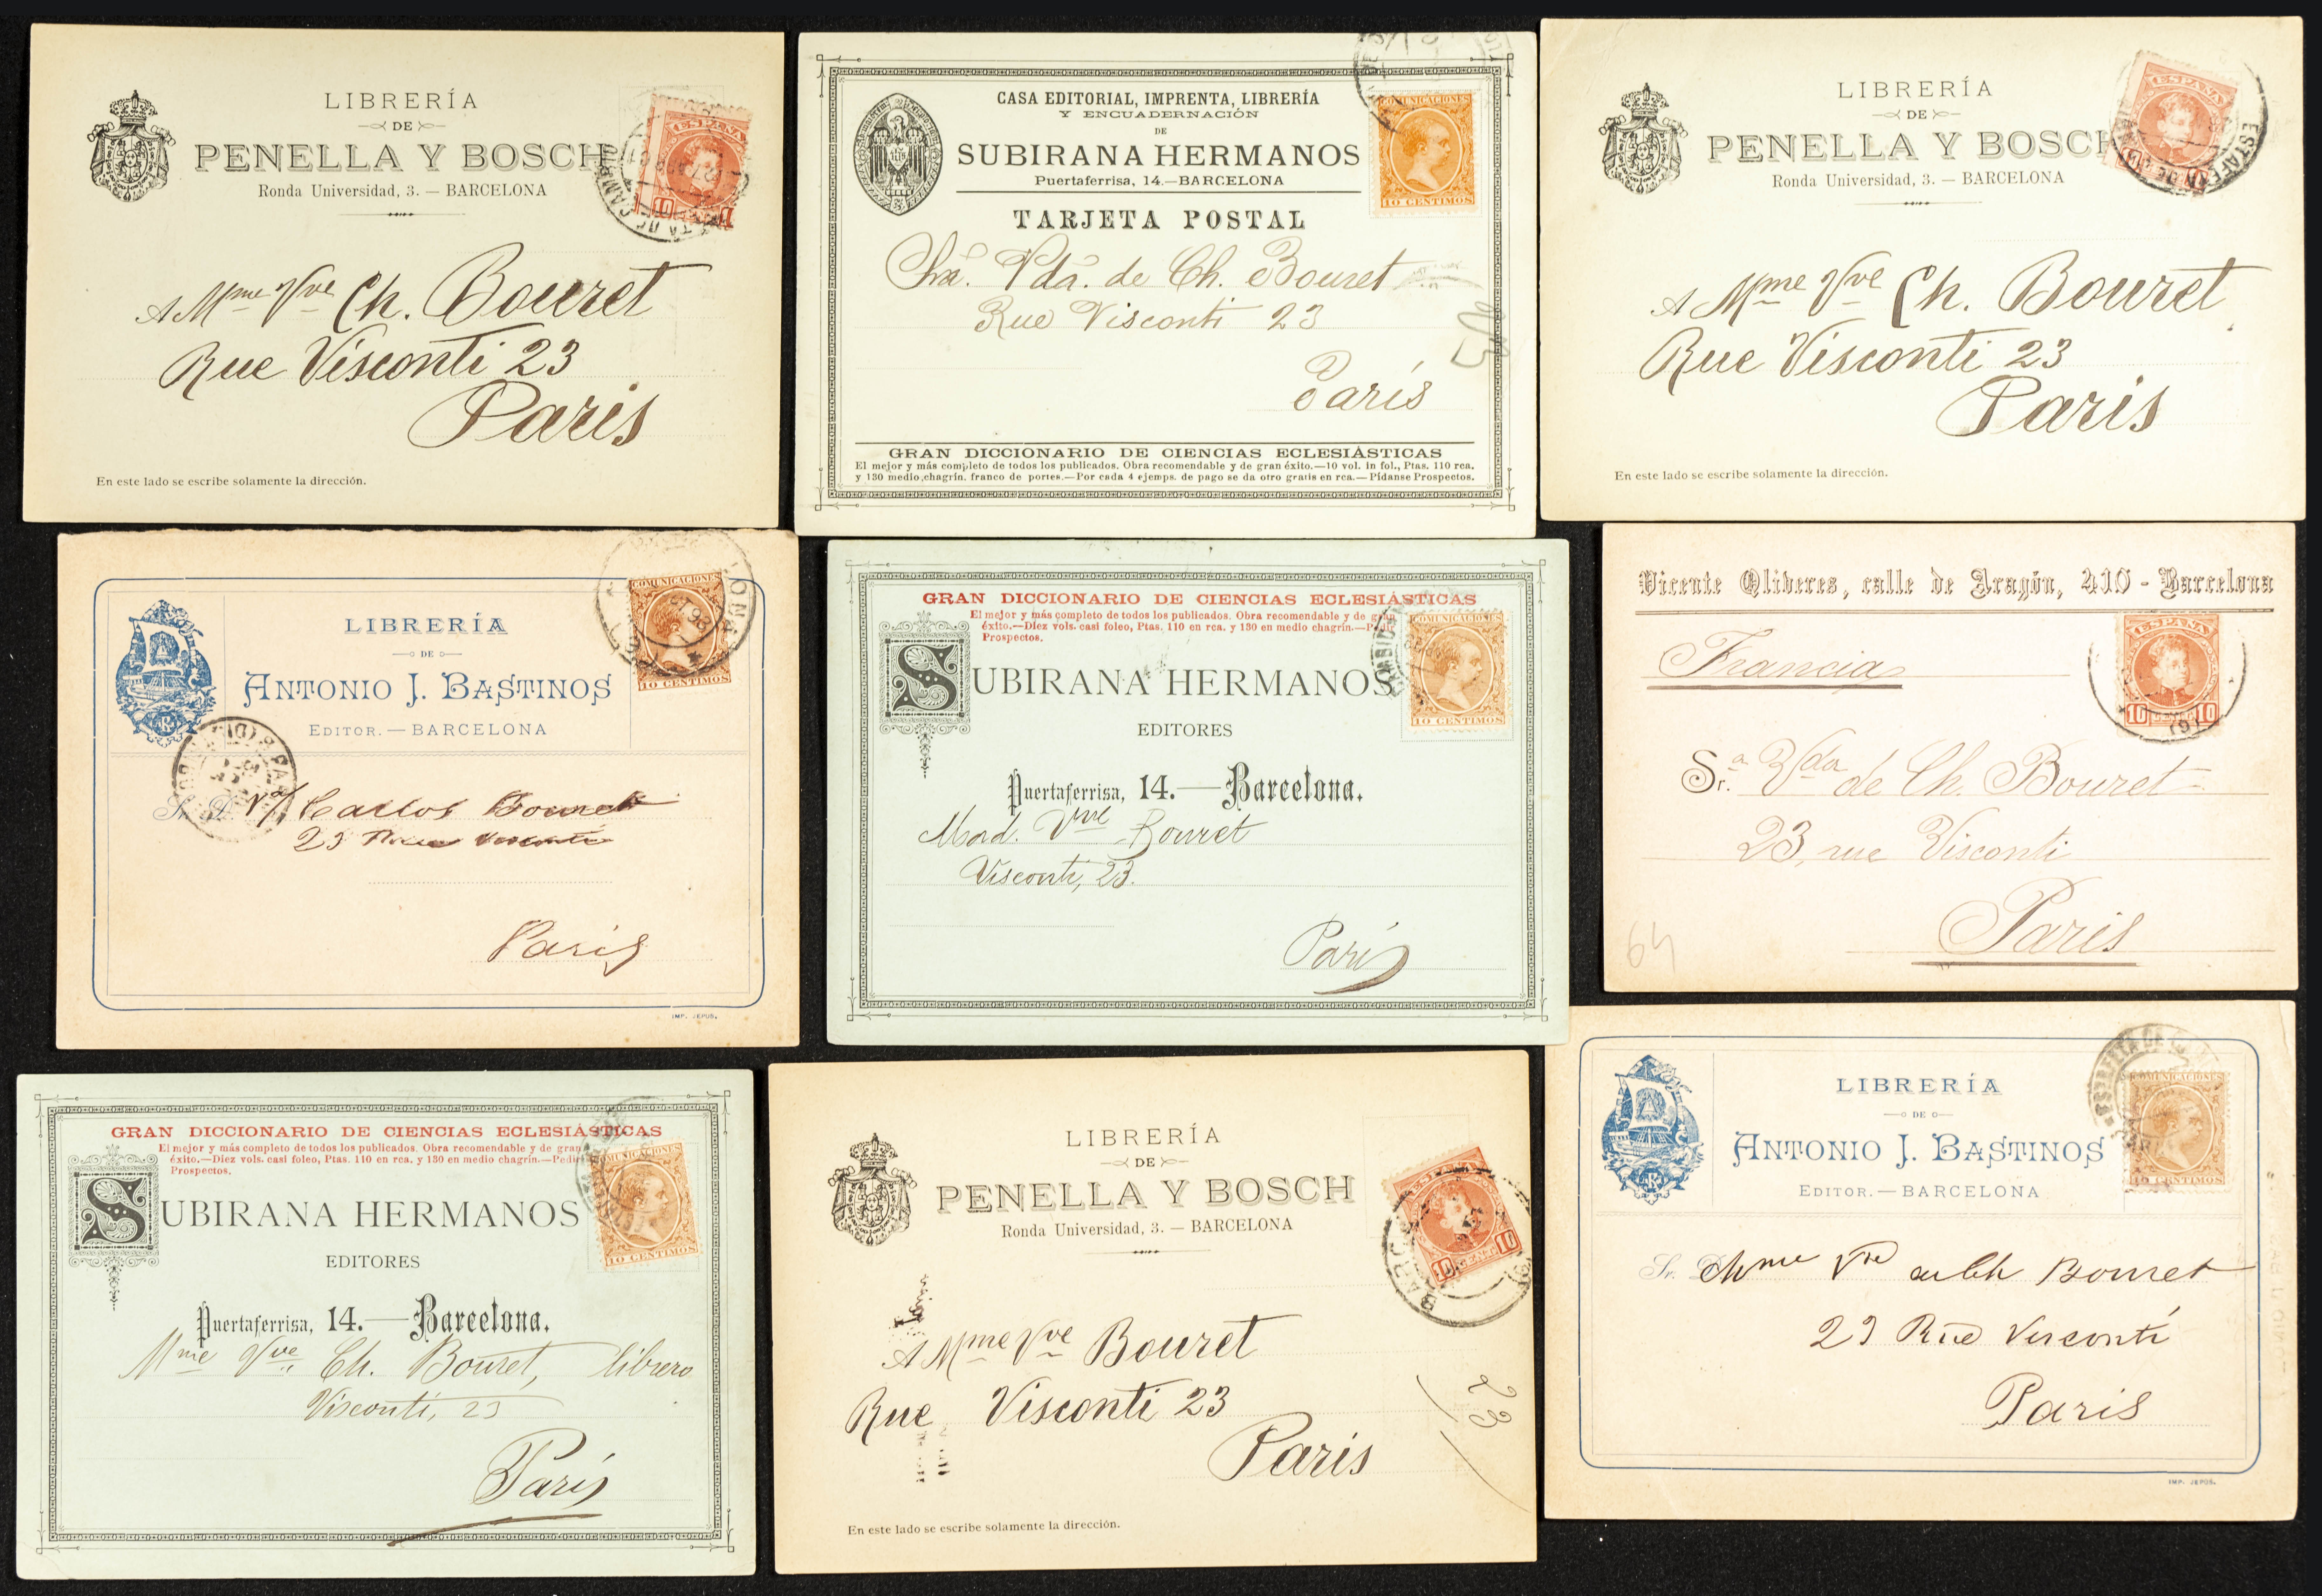 LIBRERÍA
DE
PENELLA Y BOSCH
Ronda Universidad, 3. — BARCELONA
ESPAÑA
10
A Mme Vve Ch. Bouret
Rue Visconti 23
Paris
En este lado se escribe solamente la dirección.
CASA EDITORIAL, IMPRENTA, LIBRERÍA
Y ENCUADERNACIÓN
DE
SUBIRANA HERMANOS
Puertaferrisa, 14.—BARCELONA
TARJETA POSTAL
COMUNICACIONES
10 CENTIMOS
Sra. Vda. de Ch. Bouret
Rue Visconti 23
París
GRAN DICCIONARIO DE CIENCIAS ECLESIÁSTICAS
El mejor y más completo de todos los publicados. Obra recomendable y de gran éxito.—10 vol. in fol., Ptas. 110 rca.
y 130 medio chagrin. franco de portes.—Por cada 4 ejemps. de pago se da otro gratis en rca.—Pídanse Prospectos.
LIBRERÍA
DE
PENELLA Y BOSCH
Ronda Universidad, 3. — BARCELONA
ESPAÑA
A Mme Vve Ch. Bouret
Rue Visconti 23
Paris
En este lado se escribe solamente la dirección.
LIBRERÍA
DE
ANTONIO J. BASTINOS
EDITOR.—BARCELONA
COMUNICACIONES
10 CENTIMOS
Sr. D. Va Carlos Bouret
23 Rue Visconti
Paris
IMP. JEPÚS.
GRAN DICCIONARIO DE CIENCIAS ECLESIÁSTICAS
El mejor y más completo de todos los publicados. Obra recomendable y de gran
éxito.—Diez vols. casi foleo, Ptas. 110 en rca. y 130 en medio chagrín.—Pedir
Prospectos.
SUBIRANA HERMANOS
EDITORES
Puertaferrisa, 14.—Barcelona.
COMUNICACIONES
10 CENTIMOS
Mad. Vve Bouret
Visconti, 23.
París
Vicente Oliveres, calle de Aragón, 410 - Barcelona
Francia
ESPAÑA
10 10
Sr.a Vda de Ch. Bouret
23, rue Visconti
Paris
64
GRAN DICCIONARIO DE CIENCIAS ECLESIÁSTICAS
El mejor y más completo de todos los publicados. Obra recomendable y de gran
éxito.—Diez vols. casi foleo, Ptas. 110 en rca. y 130 en medio chagrín.—Pedir
Prospectos.
SUBIRANA HERMANOS
EDITORES
Puertaferrisa, 14.—Barcelona.
COMUNICACIONES
10 CENTIMOS
Mme Vve Ch. Bouret, librero
Visconti, 23
París
LIBRERÍA
DE
PENELLA Y BOSCH
Ronda Universidad, 3. — BARCELONA
10 CENT 10
A Mme Vve Bouret
Rue Visconti 23
Paris
23
En este lado se escribe solamente la dirección.
LIBRERÍA
DE
ANTONIO J. BASTINOS
EDITOR.—BARCELONA
COMUNICACIONES
10 CENTIMOS
Sr. D. Mme Vve de Ch Bouret
23 Rue Visconti
Paris
IMP. JEPÚS.